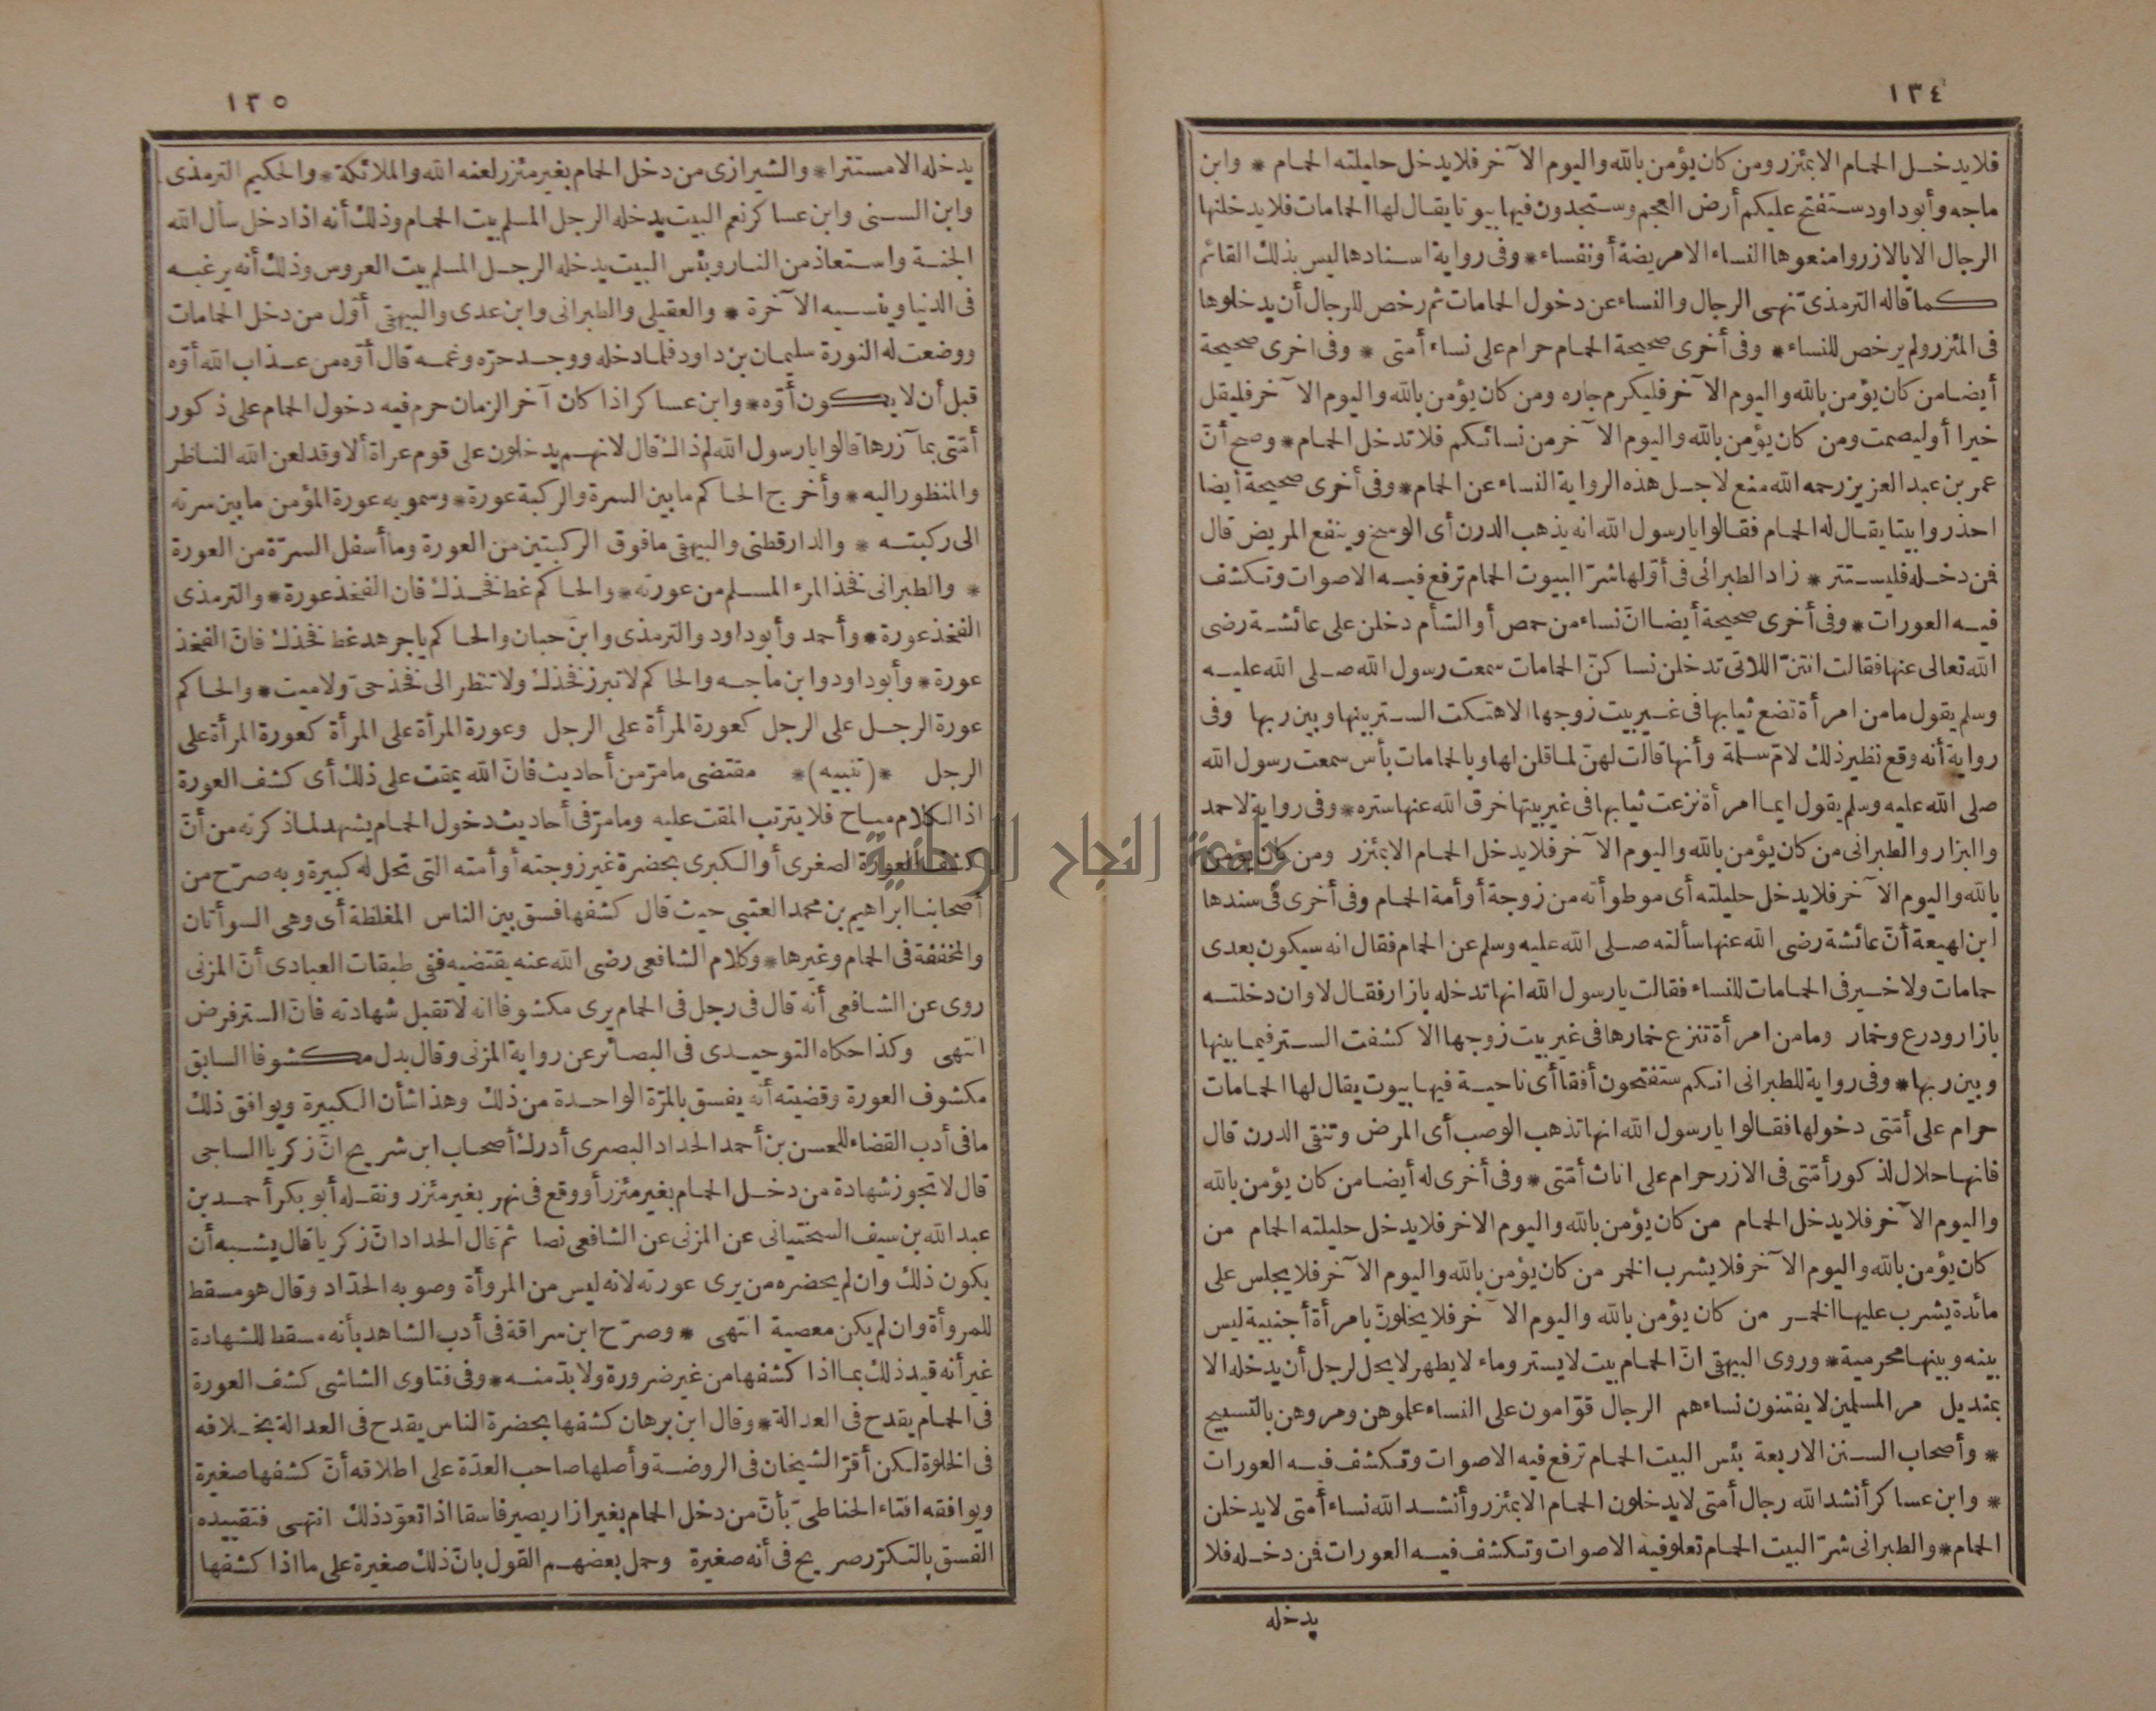 ١٣٤
فلا يدخل الحمام الا بمئزر ومن كان يؤمن بالله واليوم الآخر فلا يدخل حليلته الحمام * وابن
ماجه وأبو داود ستفتح عليكم أرض العجم وستجدون فيها بيوتا يقال لها الحمامات فلا يدخلنها
الرجال الا بالازر وامنعوها النساء الا مريضة أو نفساء * وفى رواية اسنادها ليس بذلك القائم
كما قاله الترمذىّ نهى الرجال والنساء عن دخول الحمامات ثم رخص للرجال أن يدخلوها
فى المئزر ولم يرخص للنساء * وفى أخرى صحيحة الحمام حرام على نساء أمتى * وفى اخرى صحيحة
أيضا من كان يؤمن بالله واليوم الآخر فليكرم جاره ومن كان يؤمن بالله واليوم الآخر فليقل
خيرا أو ليصمت ومن كان يؤمن بالله واليوم الآخر من نسائكم فلا تدخل الحمام * وصح أنّ
عمر بن عبد العزيز رحمه الله منع لاجل هذه الرواية النساء عن الحمام * وفى أخرى صحيحة أيضا
احذروا بيتا يقال له الحمام فقالوا يا رسول الله انه يذهب الدرن أى الوسخ وينفع المريض قال
فمن دخله فليستتر * زاد الطبرانى فى أوّلها شرّ البيوت الحمام ترفع فيه الاصوات وتكشف
فيه العورات * وفى أخرى صحيحة أيضا انّ نساء من حمص أو الشأم دخلن على عائشة رضى
الله تعالى عنها فقالت انتنّ اللاتى تدخلن نساكنّ الحمامات سمعت رسول الله صلى الله عليه
وسلم يقول ما من امرأة تضع ثيابها فى غير بيت زوجها الا هتكت الستر بينها وبين ربها وفى
رواية أنه وقع نظير ذلك لامّ سلمة وأنها قالت لهنّ لما قلن لها وبالحمامات بأس سمعت رسول الله
صلى الله عليه وسلم يقول ايما امرأة نزعت ثيابها فى غير بيتها خرق الله عنها ستره * وفى رواية لاحمد
والبزار والطبرانى من كان يؤمن بالله واليوم الآخر فلا يدخل الحمام الا بمئزر ومن كان يؤمن
بالله واليوم الآخر فلا يدخل حليلته أى موطوأته من زوجة أو أمة الحمام وفى أخرى فى سندها
ابن لهيعة أنّ عائشة رضى الله عنها سألته صلى الله عليه وسلم عن الحمام فقال انه سيكون بعدى
حمامات ولا خير فى الحمامات للنساء فقالت يا رسول الله انها تدخله بازار فقال لا وان دخلته
بازار ودرع وخمار وما من امرأة تنزع خمارها فى غير بيت زوجها الا كشفت الستر فيما بينها
وبين ربها * وفى رواية للطبرانى انكم ستفتحون أفقا أى ناحية فيها بيوت يقال لها الحمامات
حرام على أمّتى دخولها فقالوا يا رسول الله انها تذهب الوصب أى المرض وتنقى الدرن قال
فانها حلال لذكور أمّتى فى الازر حرام على اناث أمّتى * وفى أخرى له أيضا من كان يؤمن بالله
واليوم الآخر فلا يدخل الحمام من كان يؤمن بالله واليوم الاخر فلا يدخل حليلته الحمام من
كان يؤمن بالله واليوم الآخر فلا يشرب الخمر من كان يؤمن بالله واليوم الآخر فلا يجلس على
مائدة يشرب عليها الخمر من كان يؤمن بالله واليوم الآخر فلا يخلونّ بامرأة أجنبية ليس
بينه وبينها محرمية * وروى البيهقى انّ الحمام بيت لا يستر وماء لا يطهر لا يحل لرجل أن يدخله الا
بمنديل مر المسلمين لا يفتنون نساءهم الرجال قوّامون على النساء علموهن ومروهن بالتسبيح
* وأصحاب السنن الاربعة بئس البيت الحمام ترفع فيه الاصوات وتكشف فيه العورات
* وابن عساكر أنشد الله رجال أمتى لا يدخلون الحمام الا بمئزر وأنشد الله نساء أمتى لا يدخلن
الحمام * والطبرانى شرّ البيت الحمام تعلو فيه الاصوات وتكشف فيه العورات فمن دخله فلا
يدخله
١٣٥
يدخله الا مستترا * والشيرازى من دخل الحمام بغير مئزر لعنه الله والملائكة * والحكيم الترمذى
وابن السنى وابن عساكر نعم البيت يدخله الرجل المسلم بيت الحمام وذلك أنه اذا دخل سأل الله
الجنة واستعاذ من النار وبئس البيت يدخله الرجل المسلم بيت العروس وذلك أنه يرغبه
فى الدنيا وينسيه الآخرة * والعقيلى والطبرانى وابن عدى والبيهقى أوّل من دخل الحمامات
ووضعت له النورة سليمان بن داود فلما دخله ووجد حرّه وغمه قال أوّه من عذاب الله أوّه
قبل أن لا يكون أوّه * وابن عساكر اذا كان آخر الزمان حرم فيه دخول الحمام على ذكور
أمّتى بمآزرها قالوا يا رسول الله لم ذاك قال لانهم يدخلون على قوم عراة ألا وقد لعن الله الناظر
والمنظور اليه * وأخرج الحاكم ما بين السرة والركبة عورة * وسمويه عورة المؤمن ما بين سرته
الى ركبته * والدارقطنى والبيهقى ما فوق الركبتين من العورة وما أسفل السرّة من العورة
* والطبرانى فخذ المرء المسلم من عورته * والحاكم غط فخذك فان الفخذ عورة * والترمذى
الفخذ عورة * وأحمد وأبو داود والترمذى وابن حبان والحاكم يا جرهد غط فخذك فانّ الفخذ
عورة * وأبو داود وابن ماجه والحاكم لا تبرز فخذك ولا تنظر الى فخذ حىّ ولا ميت * والحاكم
عورة الرجل على الرجل كعورة المرأة على الرجل وعورة المرأة على المرأة كعورة المرأة على
الرجل *(تنبيه)* مقتضى ما مرّ من أحاديث فانّ الله يمقت على ذلك أى كشف العورة
اذ الكلام مباح فلا يترتب المقت عليه وما مرّ فى أحاديث دخول الحمام يشهد لما ذكرته من أنّ
كشف العورة الصغرى أو الكبرى بحضرة غير زوجته أو أمته التى تحل له كبيرة وبه صرّح من
أصحابنا ابراهيم بن محمد العتبى حيث قال كشفها فسق بين الناس المغلظة أى وهى السوأتان
والمخففة فى الحمام وغيرها * وكلام الشافعى رضى الله عنه يقتضيه ففى طبقات العبادى أنّ المزنى
روى عن الشافعى أنه قال فى رجل فى الحمام يرى مكشوفا انه لا تقبل شهادته فانّ الستر فرض
انتهى وكذا حكاه التوحيدى فى البصائر عن رواية المزنى وقال بدل مكشوفا السابق
مكشوف العورة وقضيته أنه يفسق بالمرّة الواحدة من ذلك وهذا شأن الكبيرة ويوافق ذلك
ما فى أدب القضاء للحسن بن أحمد الحداد البصرى أدرك أصحاب ابن شريح انّ زكريا الساجى
قال لا تجوز شهادة من دخل الحمام بغير مئزر أو وقع فى نهر بغير مئزر ونقله أبو بكر أحمد بن
عبد الله بن سيف السختيانى عن المزنى عن الشافعى نصا ثم قال الحداد انّ زكريا قال يشبه أن
يكون ذلك وان لم يحضره من يرى عورته لانه ليس من المروأة وصوبه الحدّاد وقال هو مسقط
للمروأة وان لم يكن معصية انتهى * وصرّح ابن سراقة فى أدب الشاهد بأنه مسقط للشهادة
غير أنه قيد ذلك بما اذا كشفها من غير ضرورة ولا بدّ منه * وفى فتاوى الشاشى كشف العورة
فى الحمام يقدح فى العدالة * وقال ابن برهان كشفها بحضرة الناس يقدح فى العدالة بخلافه
فى الخلوة لكن أقرّ الشيخان فى الروضة وأصلها صاحب العدّة على اطلاقه أنّ كشفها صغيرة
ويوافقه افتاء الحناطىّ بأنّ من دخل الحمام بغير ازار يصير فاسقا اذا تعوّد ذلك انتهى فتقييده
الفسق بالتكرّر صريح فى أنه صغيرة وحمل بعضهم القول بانّ ذلك صغيرة على ما اذا كشفها
جامعة النجاح الوطنية